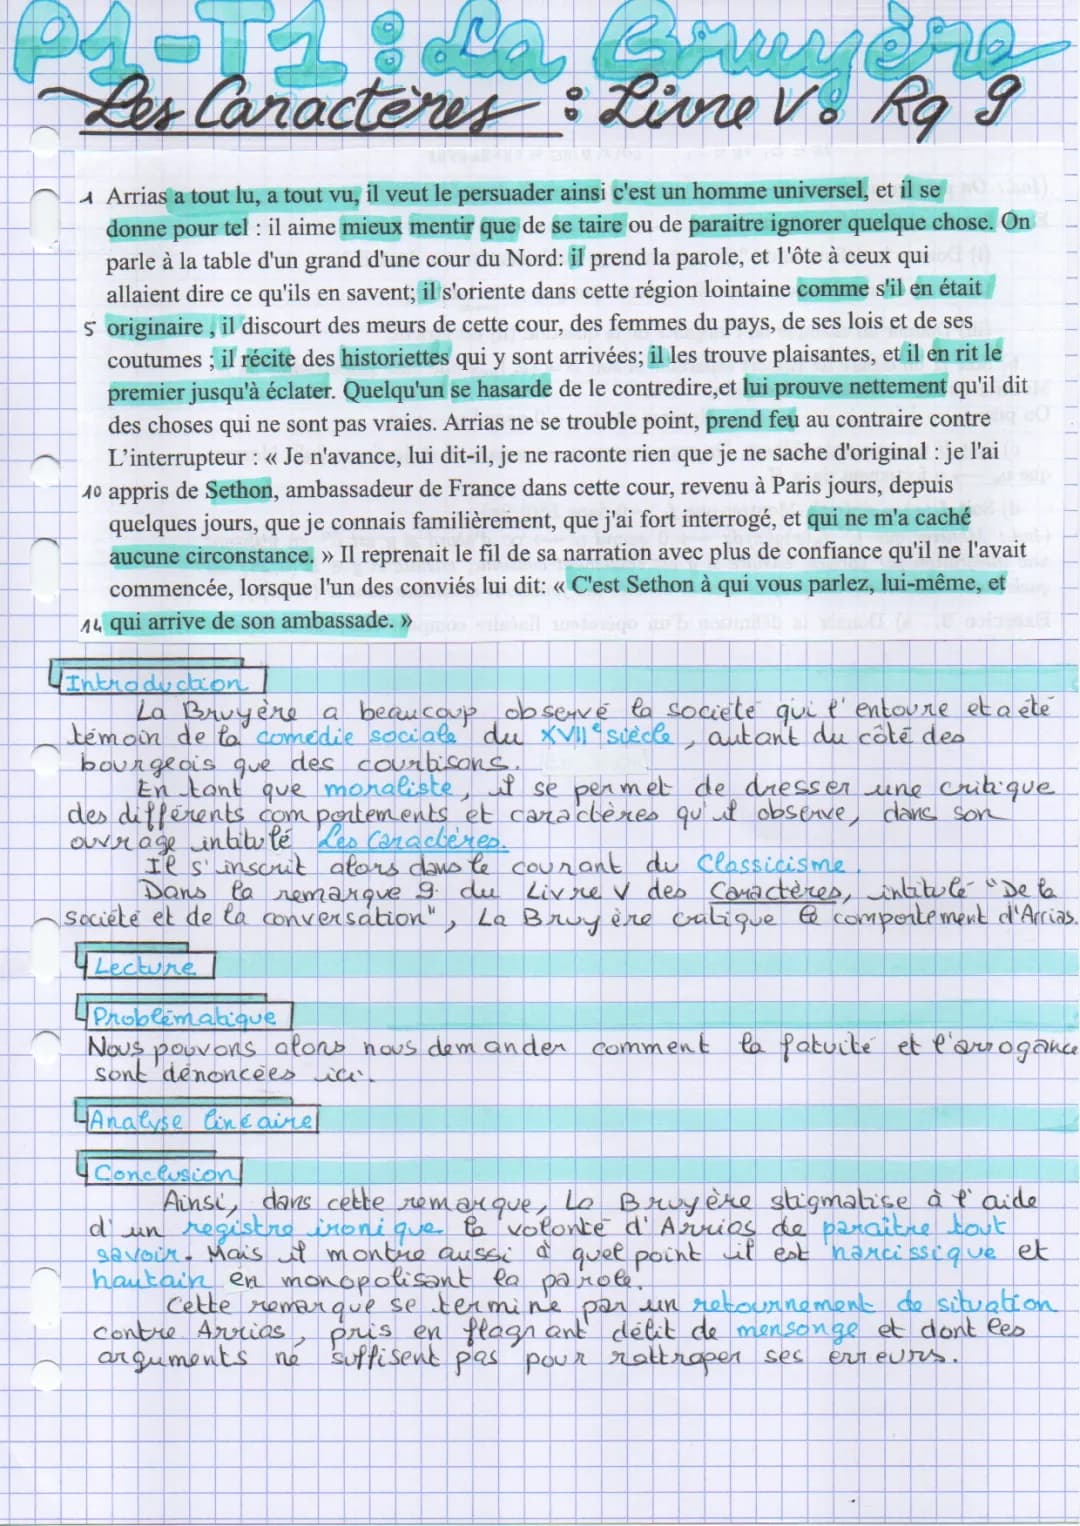 P1-T1 : La Bruyère
Les Caractères : Livre V : Rq 9
1 Arrias a tout lu, a tout vu, il veut le persuader ainsi c'est un homme universel, et il se
donne pour tel : il aime mieux mentir que de se taire ou de paraitre ignorer quelque chose. On
parle à la table d'un grand d'une cour du Nord: il prend la parole, et l'ôte à ceux qui
allaient dire ce qu'ils en savent; il s'oriente dans cette région lointaine comme s'il en était
5 originaire , il discourt des meurs de cette cour, des femmes du pays, de ses lois et de ses
coutumes ; il récite des historiettes qui y sont arrivées; il les trouve plaisantes, et il en rit le
premier jusqu'à éclater. Quelqu'un se hasarde de le contredire,et lui prouve nettement qu'il dit
des choses qui ne sont pas vraies. Arrias ne se trouble point, prend feu au contraire contre
L'interrupteur : « Je n'avance, lui dit-il, je ne raconte rien que je ne sache d'original : je l'ai
10 appris de Sethon, ambassadeur de France dans cette cour, revenu à Paris jours, depuis
quelques jours, que je connais familièrement, que j'ai fort interrogé, et qui ne m'a caché
aucune circonstance. » Il reprenait le fil de sa narration avec plus de confiance qu'il ne l'avait
commencée, lorsque l'un des conviés lui dit: « C'est Sethon à qui vous parlez, lui-même, et
14 qui arrive de son ambassade. »
Introduction
La Bruyère a beaucoup observé la société qui l'entoure et a été
témoin de la comédie sociale du XVIIe siècle, autant du côté des
bourgeois que des courtisans.
En tant que moraliste, il se permet de dresser une critique
des différents comportements et caractères qu'il observe, dans son
ouvrage intitulé Les Caractères.
Il s'inscrit alors dans le courant du Classicisme.
Dans la remarque 9 du Livre V des Caractères, intitulé "De la
société et de la conversation", La Bruyère critique le comportement d'Arrias.
Lecture
Problématique
Nous pouvons alors nous demander comment la fatuité et l'arrogance
sont dénoncées ici.
Analyse linéaire
Conclusion
Ainsi, dans cette remarque, La Bruyère stigmatise à l'aide
d'un registre ironique la volonté d'Arrias de paraître tout
savoir. Mais il montre aussi à quel point il est narcissique et
hautain en monopolisant la parole.
Cette remarque se termine par un retournement de situation
contre Arrias, pris en flagrant délit de mensonge et dont les
arguments ne suffisent pas pour rattraper ses erreurs.